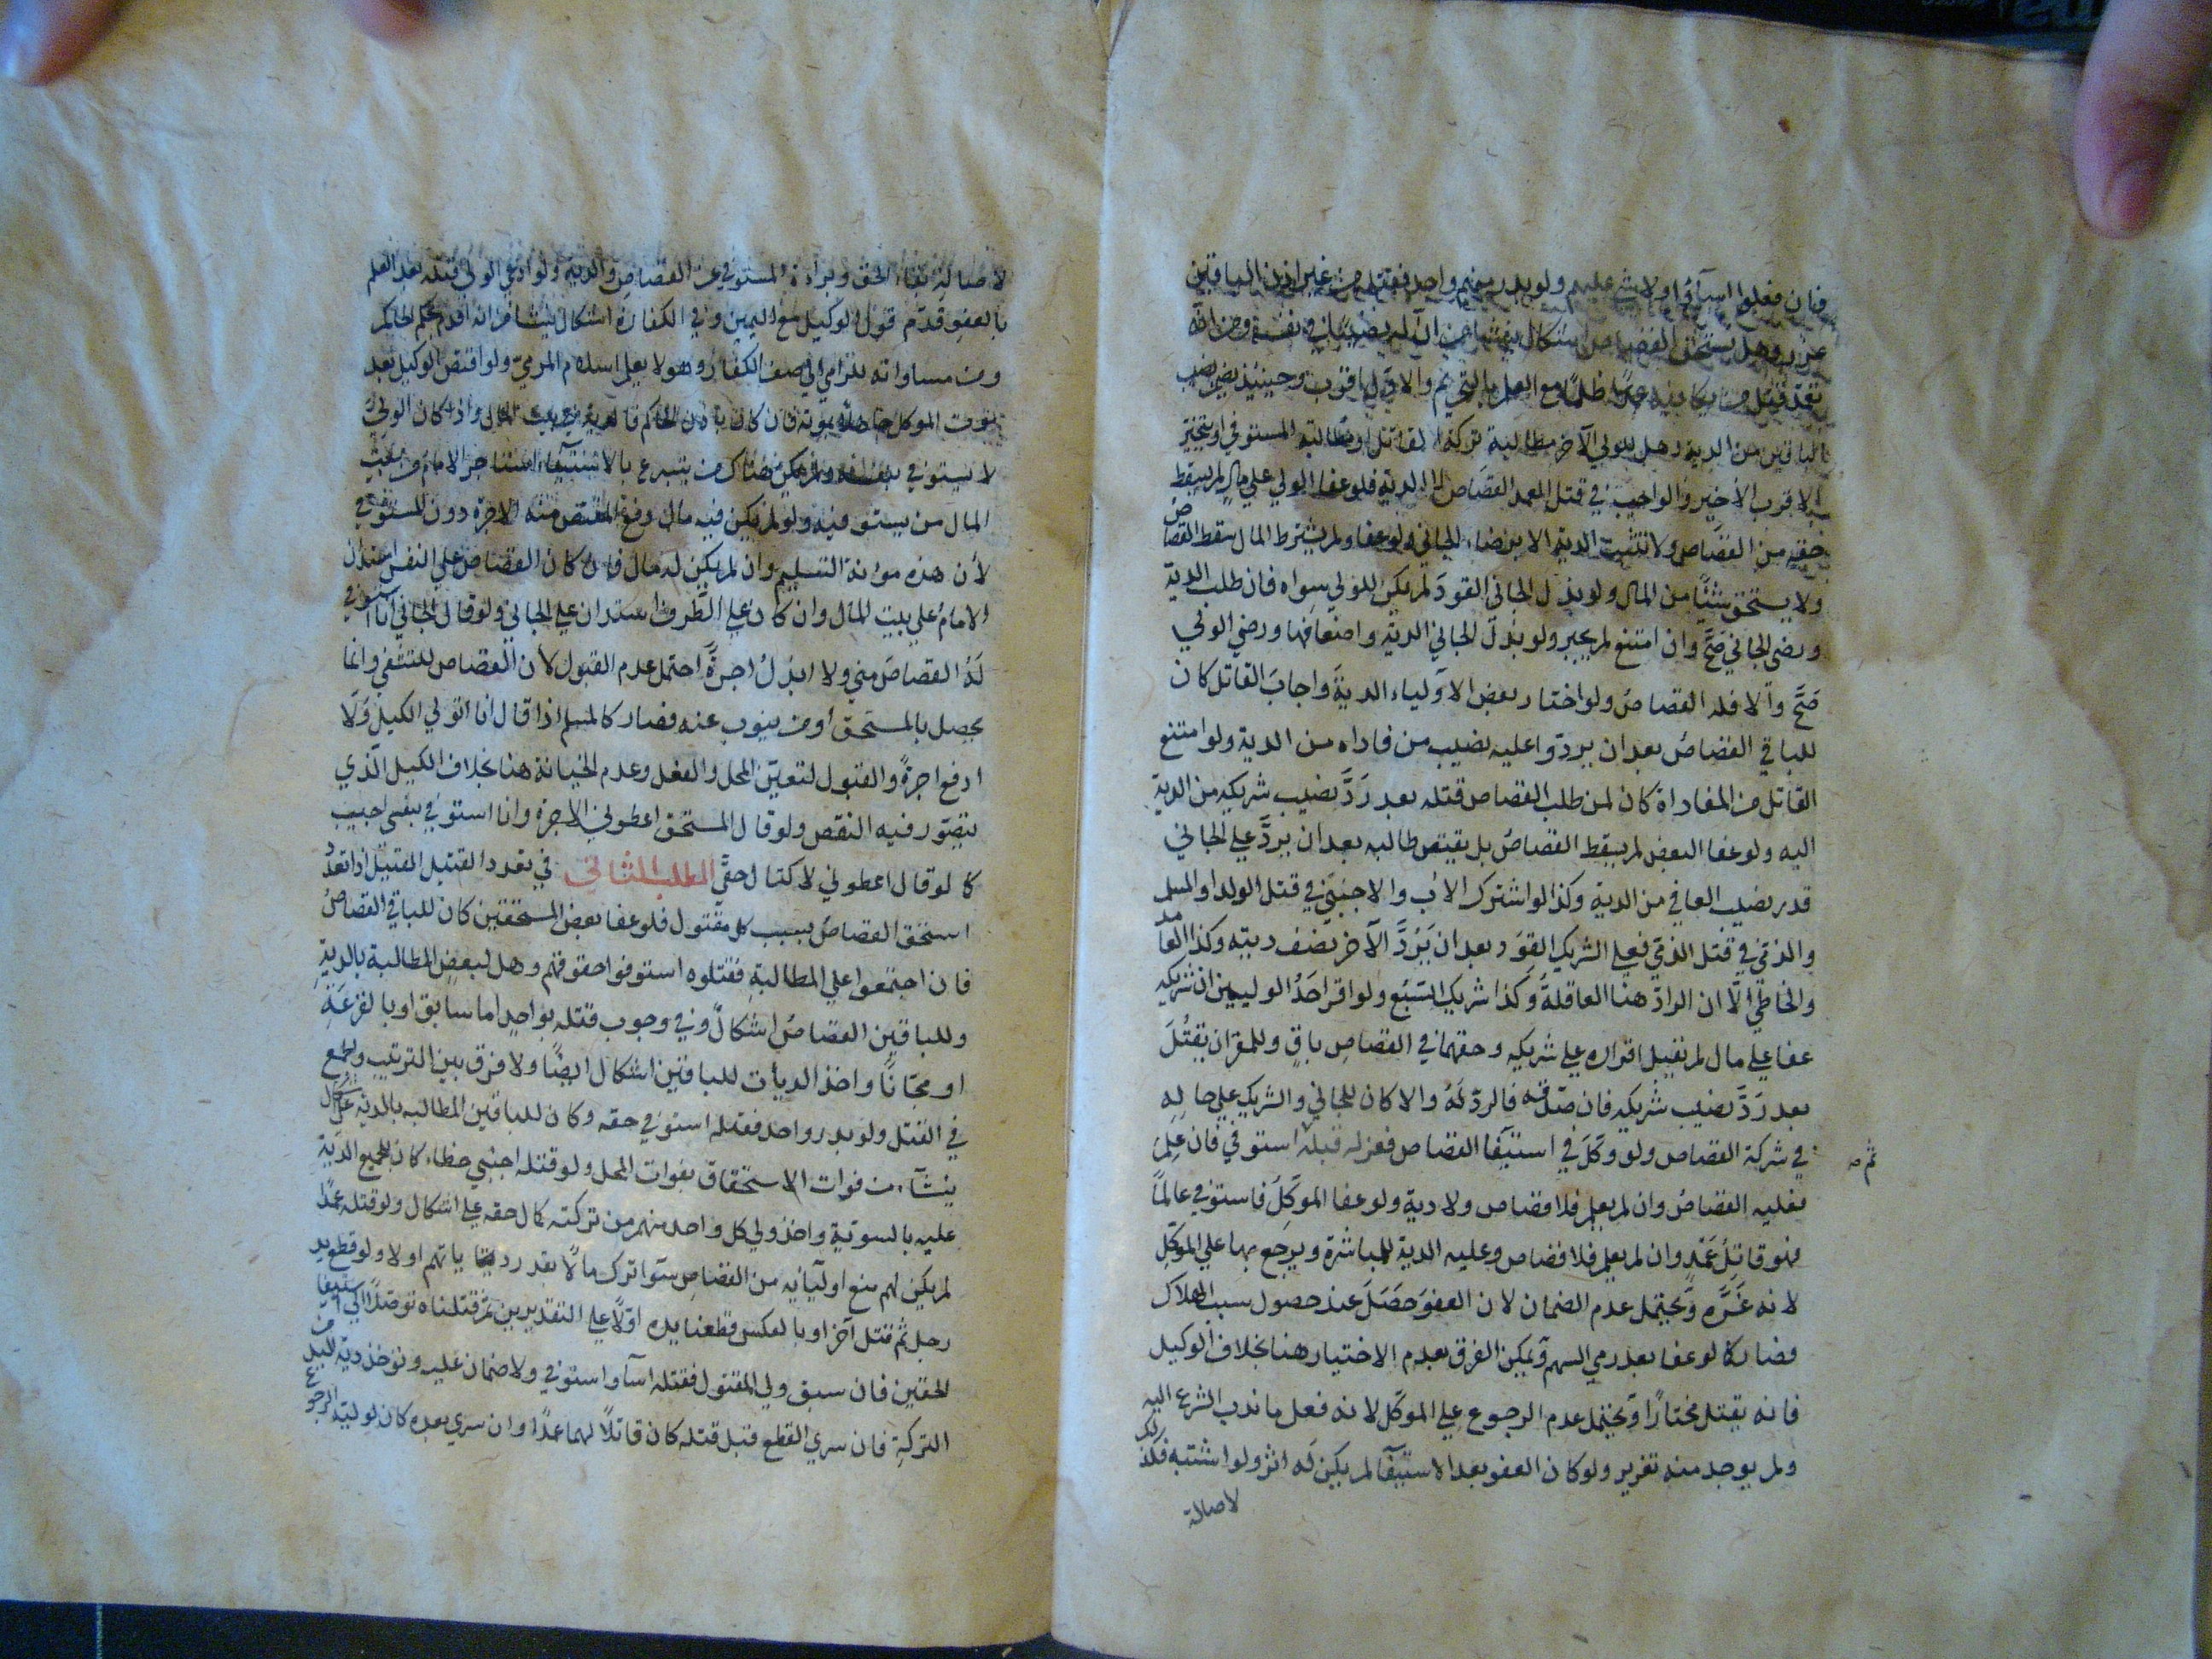 فان فعلوا اسآؤا ولا شيء عليهم ولو بدر منهم واحد فقتله من غير اذن الباقين
عزر وهل يستحق القصاص اشكال ينشا من ان له نصيبا في نفسه ومن انه
تعدّ قتل من يكافيه ظلما مع العلم بالتحريم والاول اقرب وحينئذ نصيب
الباقين من الدية وهل للولي الآخر مطالبة تركة القاتل او مطالبة المستوفي او يتخير
الاقرب الاخير والواجب في قتل العمد القصاص لا الدية فلو عفا الولي علي مال لم يسقط
حقه من القصاص ولا تثبت الدية الا برضاء الجاني ولو عفا ولم يشترط المال سقط القصاص
ولا يستحق شيئًا من المال ولو بذل الجاني القود لم يكن للولي سواه فان طلب الدية
ورضي الجاني صَحَّ وان امتنع لم يجبر ولو بذل الجاني الدية واضعافها ورضي الولي
صَحَّ والا فله القصاص ولو اختار بعض الاولياء الدية واجابَ القاتل كان
للباقي القصاصُ بعد ان يردّوا عليه نصيب من فاداه من الدية ولو امتنع
القاتل من المفاداة كان لمن طلب القصاص قتله بعد رَدَّ نصيب شريكه من الدية
اليه ولو عفا البعض لم يسقط القصاصُ بل يقتص طالبه بعد ان يردَّ علي الجاني
قدر نصيب العافي من الدية وكذا لو اشترك الاب والاجنبيّ في قتل الولد او المسلم
والذمّي في قتل الذمّي فعلي الشريك القوَد بعد ان يَرُدَّ الآخر نصف ديته وكذا العامد
والخاطئ الّا ان الرادّ هنا العاقلةُ وكذا شريك السَّبُع ولو اقر احَدُ الوليين ان شريكه
عفا علي مال لم تقبل اقراره علي شريكه وحقهما في القصاص باقٍ وللمقر ان يقتُلَ
بعد رَدَّ نصيب شريكه فان صدّقه فالردّ لَهُ والا كان للجاني والشريك علي حالِه
في شركة القصاص ولو وكّلَ في استيفا القصاص فعزله قبله ثم استوفي فان عَلِمَ
فعليه القصاصُ وان لم يعلم فلا قصاص ولا دية ولو عفا الموكِّلُ فاستوفي عالمًا
فهو قاتِلُ عَمْدٍ وان لم يعلم فلا قصاص وعليه الدية للمباشرة ويرجع بها علي الموكّلِ
لانه غَرَّه وَيحتمل عدم الضمان لان العفوَ حَصَلَ عند حصول سبب الهلاك
فصار كما لو عفا بعد رمي السهم وَيمكن الفرق بعدم الاختيار هنا بخلاف الوكيل
فانه يقتل مختارًا وَيحتمل عدم الرجوع علي الموكِّل لانه فعل ما ندب الشرع اليه
ولم يوجد منه تغرير ولو كان العفو بعد الاستيفآ لم يكن لَه اثر ولو اشتبه فكذلك
لاصالة
لاصالة بقاء الحق وبراءة المستوفي عن القصاصِ والدية ولو ادعي الولي قتله بعد العلم
بالعفو قدّم قول الوكيل مع اليمين وفي الكفارة اشكال ينشا من انه اقدم بحكم الحاكم
ومن مساواته للرامي الي صف الكفار وهو لا يعلم اسلام المرميّ ولو اقتص الوكيل بعد
موت الموكل جاهلا بموته فان كان باذن الحاكم فالدية في بيت المال واذا كان الولي
لا يستوفي بنفسه ولم يكن هناك من يتبرع بالاستيفاء استاجر الامام من بيت
المال من يستوفيه ولو لم يكن فيه مال دفع المقتص منه الاجرة دون المستوفي
لأن هذه مؤنة التسليم وان لم يكن له مال فان كان القصاص علي النفس استدان
الامام علي بيت المال وان كان علي الطَّرف استدان علي الجاني ولو قال الجاني أنا استوفي
لَهُ القصاصَ مني ولا ابذلُ اجرةً احتمل عدم القبول لأن القصاص للتشفي وانما
يحصل بالمستحق أو من ينوب عنه فصار كالمسلم اذا قال انا اتولي الكيل وَلَا
ادفع اجرةً والقبول لتعيّن المحل والفعل وعدم الخيانة هنا بخلاف الكيل الّذي
يتصّور فيه النقص ولو قال المستحق اعطوني الاجرة وانا استوفي بنفسي اجيب
كما لو قال اعطوني لاكتال حقيَّ المطلب الثاني في تعدد القتيل القتيل اذا تعدّدُ
استحق القصاصُ بسبب كل مقتول فلو عفا بعض المستحقين كان للباقي القصاصُ
فان اجتمعوا علي المطالبةِ فقتلوه استوفوا حقوقهم وهل لبعضٍ المطالبة بالديةِ
وللباقين القصاصُ اشكالٌ وفي وجوب قتله بواحدٍ اما سابق او بالقرعَةِ
او مجّانًا واخذ الديات للباقين اشكال ايضًا ولا فرق بين الترتيب والجمع
في القتل ولو بدر واحد فقتله استوفي حقه وكان للباقين المطالبه بالدية علي اشكال
ينشآء من فوات الاستحقاق بفوات المحل ولو قتله اجنبي خطاء كان للجميع الدَّية
عليه بالسويّةِ واخذ ولي كل واحد منهم من تركته كمال حقه علي اشكال ولو قتله عمدًا
لم يكن لهم منع اوليآئه من القصاصِ سوآ اترك مالًا بقدر دياتهم اولا ولو قطع يد
رجل ثُم قتل آخر او بالعكس قطعنا يده اوّلًا علي التقديرين ثم قتلناه توصّلًا الي استيفا
الحقين فان سبق ولي المقتول فقتله اسآو استوفي ولا ضمان عليه ونوخذ دية اليد من
التركةِ فان سري القطع قبل قتله كان قاتلًا لهما عمدًا وان سري بعده كان لوليّه الرجوع